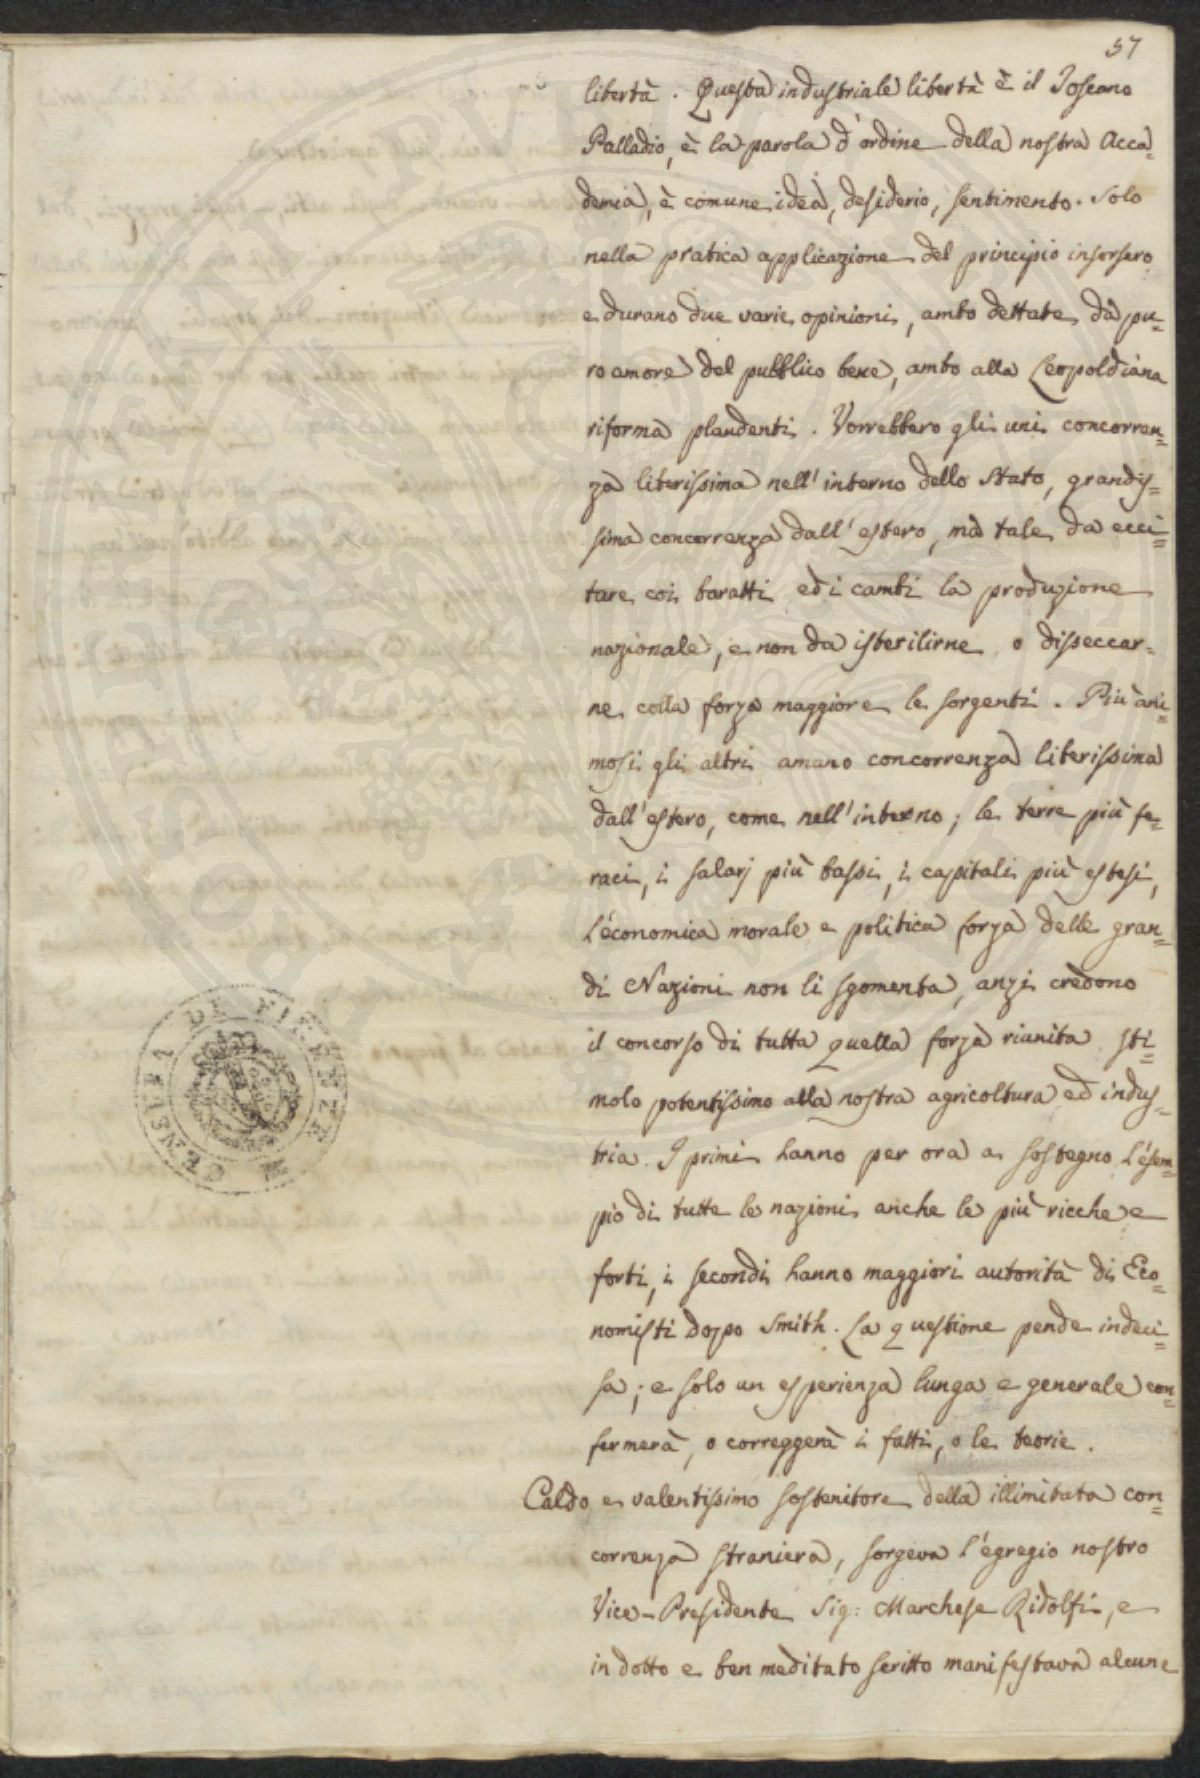 57
libertà. Questa industriale libertà è il Toscano
Palladio, è la parola d'ordine della nostra Acca=
demia, è comune idea, desiderio, sentimento. Solo
nella pratica applicazione del principio insorsero
e durano due varie opinioni, ambo dettate da pu=
ro amore del pubblico bene, ambo alla Leopoldiana
riforma plaudenti. Vorrebbero gli uni concorren=
za liberissima nell'interno dello Stato, grandis=
sima concorrenza dall'estero, ma tale da ecci=
tare coi baratti ed i cambi la produzione
nazionale, e non da isterilirne o disseccar=
ne colla forza maggiore le sorgenti. Più ani=
mosi gli altri amano concorrenza liberissima
dall'estero, come nell'interno; le terre più fe=
raci, i salarj più bassi, i capitali più estesi,
l'economica morale e politica forza delle gran=
di Nazioni non li sgomenta, anzi credono
il concorso di tutta quella forza riunita sti=
molo potentissimo alla nostra agricoltura ed indus=
tria. I primi hanno per ora a sostegno l'esem=
pio di tutte le nazioni anche le più ricche e
forti, i secondi hanno maggiori autorità di Eco=
nomisti dopo Smith. La questione pende indeci=
sa; e solo un esperienza lunga e generale con=
fermerà, o correggerà i fatti, o le teorie.
Caldo e valentissimo sostenitore della illimitata con=
correnza straniera, sorgeva l'egregio nostro
Vice-Presidente Sig: Marchese Ridolfi, e
in dotto e ben meditato scritto manifestava alcune
DE FIRENZE